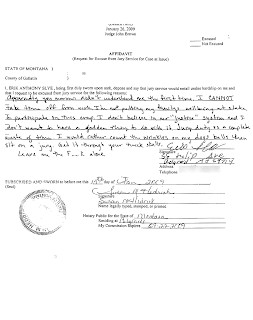 January 26, 2009
Judge John Brown
Excused
Not Excused
AFFIDAVIT
(Request for Excuse From Jury Service for Case at Issue)
STATE OF MONTANA )
County of Gallatin )
I, ERIK ANTHONY SLYE, being first duly sworn upon oath, depose and say that jury service would entail undue hardship on me and
that I request to be excused from jury service for the following reasons:
Apparently you morons didn't understand me the first time. I CANNOT
take time off from work. I'm not putting my familys wellbeing at stake
to participate in this crap. I don't believe in our "justice" system and I
don't want to have a goddam thing to do with it. Jury duty is a complete
waste of time. I would rather count the wrinkles on my dogs balls than
sit on a jury. Get it through your thick skulls.
Leave me the F__k alone.
Signature
Address
Telephone
SUBSCRIBED AND SWORN to before me this day of Jan, 2009
(Seal)
Signature
Susan
Name (typed, stamped, or printed)
Notary Public for the State of Montana
Residing at Belgrade
My Commission Expires